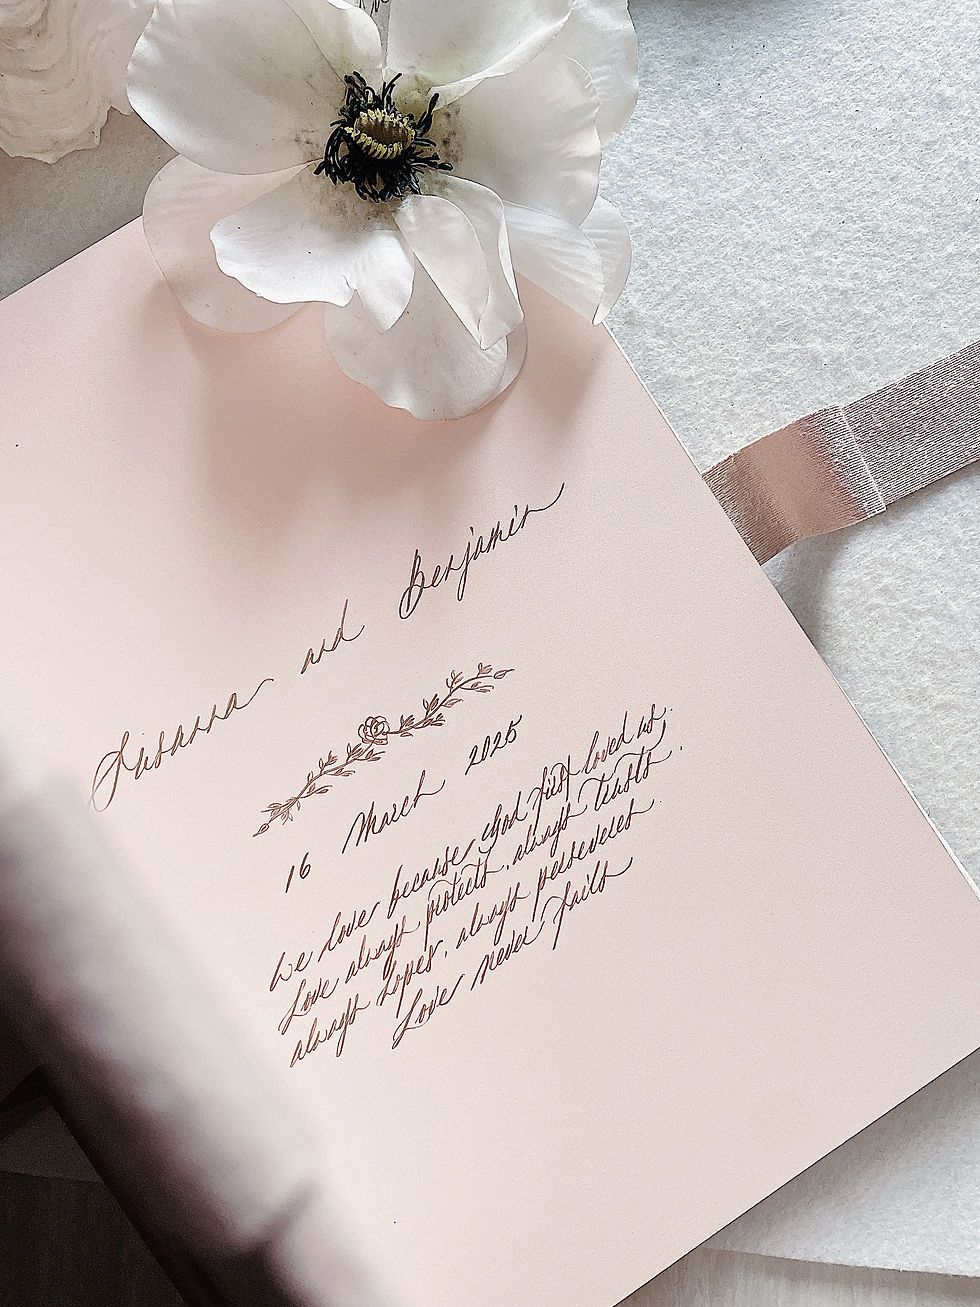 Susanna and Benjamin
16 March 2025
We love because God first loved us.
Love always protects, always trusts,
always hopes, always perseveres.
Love never fails